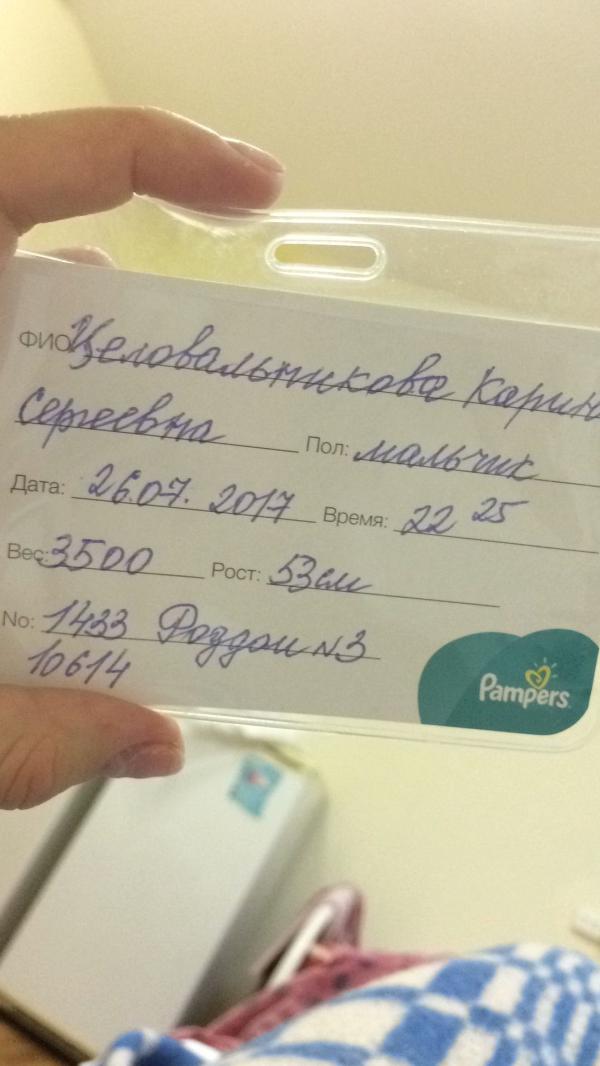 ФИО Целовальникова Карина
Сергеевна Пол: мальчик
Дата: 26.07. 2017 Время: 22 25
Вес: 3500 Рост: 53см
No: 1433 Роддом N3
10614
Pampers